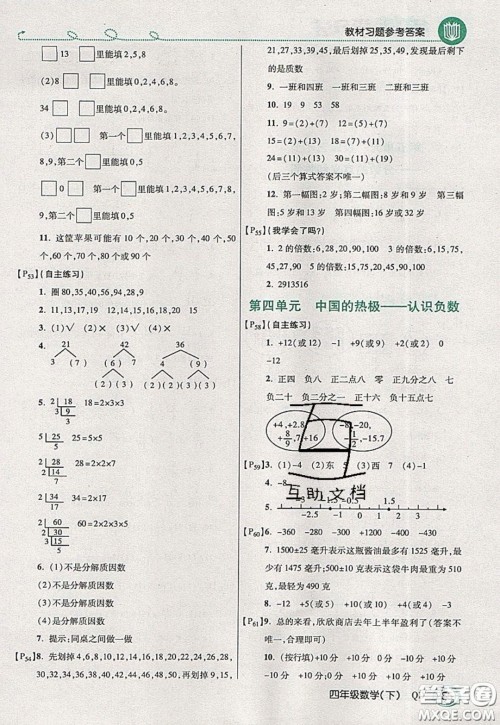 教材习题参考答案
□13 □里能填2,5,8
(2)8□ □里能填0,5
34□ □里能填0,5
(3)□□ 第一个□里能填1,2,3,4,5,6,7,
8,9,第二个□里能填0,5
□0□ 第一个□里能填1,2,3,4,5,6,7,8,
9,第二个□里能填0,5
11. 这筐苹果可能有10个,20个,30个,40个,
50个,60个,70个,80个,90个
【P53】(自主练习)
1. 圈80,35,40,56,90,28,94
2. 11,13,17,19 12,14,15,16,18,20
3. (1)√ (2)× (3)× (4)×
4. 24 42 36
(2)(2)(2)(3) (2)(3)(7) (2)(2)(3)(3)
5. 2 18 18=2×3×3
3 9
3
5 25 25=5×5
5
2 34 34=2×17
17
2 60 60=2×2×3×5
2 30
3 15
5
6. (1)不是分解质因数
(2)不是分解质因数
(3)不是分解质因数
7. 提示:同桌之间做一做
【P54】8. 先划掉4,6,8,10,12,14,16,18,20,22,24,
26,28,30,32,34,36,38,40,42,44,46,
21,27,33,39,45,51,最后划掉25,35,49,发现最后剩下
的是质数
9. 一班和四班 一班和三班 一班和二班
10. 19 9 53 58
11. 9=(2)+(7) 15=(2)+(13)
18=(7)+(11) 20=(7)+(13)
24=(11)+(13) 30=(11)+(19)
(后三个算式答案不唯一)
12. 第一幅图:2岁;第二幅图:8岁或4岁;
第三幅图:9岁;第四幅图:16岁或32岁
【P55】(我学会了吗?)
1. 2的倍数:6,28,20,90,100 3的倍数:6,15,
27,45,90 5的倍数:15,20,45,90,100
2. 2913516
第四单元 中国的热极——认识负数
【P58】(自主练习)
1. +12(或12) -9 -2 +5(或5) 0
2. 正四 负八 正二点八 正九分之八 七
负二十 负二分之一 正十六 负十五点七
+4,+2.8, +8/9,7,+16
-8,-20, -1/2,-15.7
【P59】3. (1)-4 (2)东 5 (3)西 7 (4)-3
4. -8
-2.5 -1 0 +1.5 +3
互助文档
【P60】6. -360 -280 -80 0 +120 +320 +440
7. 1500±25毫升表示这瓶酱油最多有1525毫升,
最少有1475毫升;500±10克表示这袋牛肉最重有510
克,最轻为490克
8. -12 +5 +10 +5
【P61】9. 总的来看,欣欣商店去年上半年盈利了(答案不
唯一)
10. (按行填)+10分 -10分 -10分 +10分
四年级数学(下)
MXQE.COM